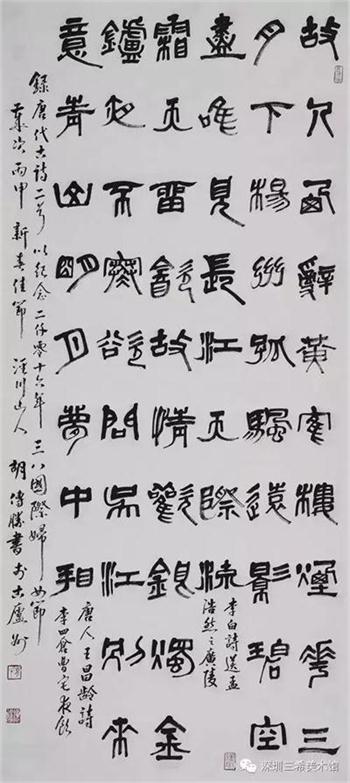 故人西辭黃鶴樓煙花三
月下楊州孤颿遠影碧空
盡唯見長江天際流
李白詩送孟
浩然之廣陵
霜天留飲故情歡銀燭金
鑪夜不寒欲問吳江別來
意青山明月夢中看
唐人王昌齡詩
李四倉曹宅夜飲
錄唐代古詩二首以紀念二仟零十六年三八國際婦女節
歲次丙申新春佳節涇川山人胡傳勝書於古廬州
深圳三希美术馆